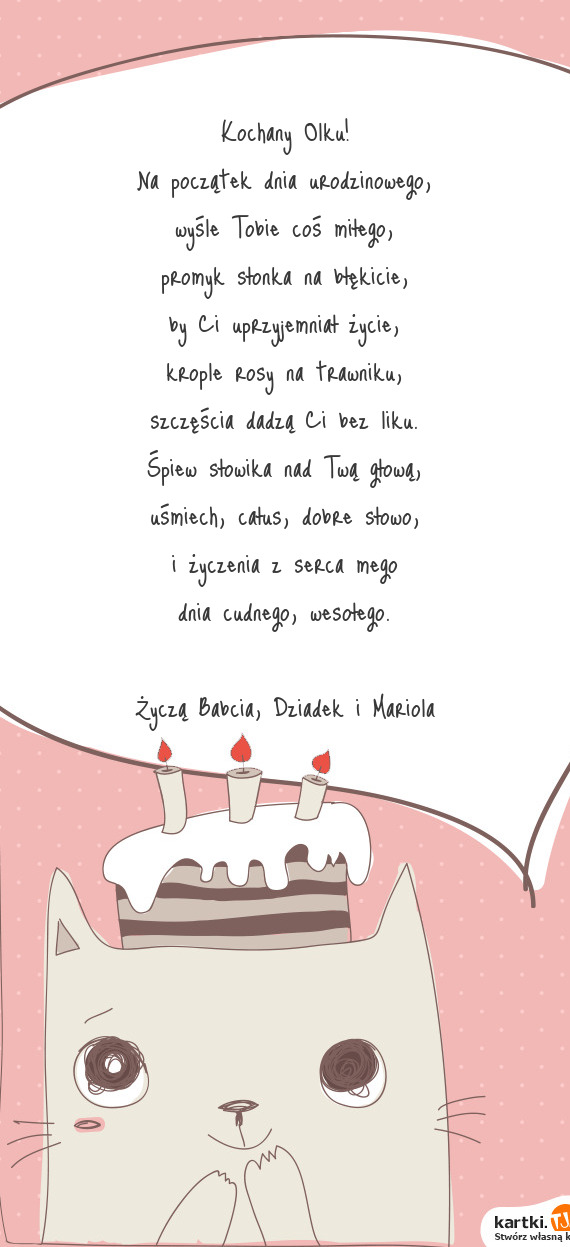 Kochany Olku!
Na początek dnia urodzinowego,
wyśle Tobie coś miłego,
promyk słonka na błękicie,
by Ci uprzyjemniał życie,
krople rosy na trawniku,
szczęścia dadzą Ci bez liku.
Śpiew słowika nad Twą głową,
uśmiech, całus, dobre słowo,
i życzenia z serca mego
dnia cudnego, wesołego.
Życzą Babcia, Dziadek i Mariola
kartki.TJ
Stwórz własną k